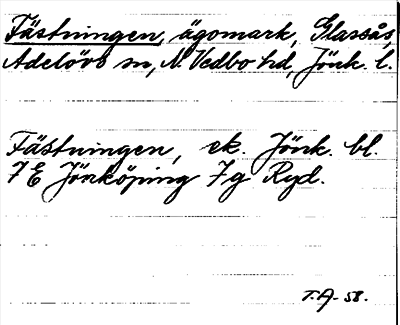 Fästningen, ägomark, Glassås,
Adelövs sn, N. Vedbo hd, Jönk. l.
Fästningen, ek. Jönk. bl.
7E Jönköping 7g Ryd.
T.A. 58.